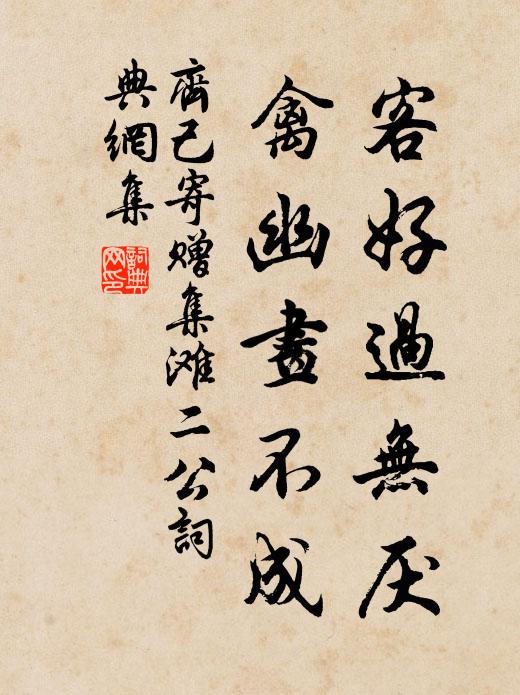 客好過無厌
禽幽畫不成
齊己寄赠集滩二公詞
典網集
詞典
网印